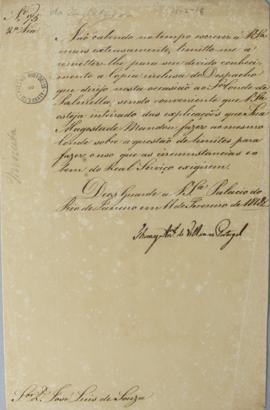 Não cabendo no tempo escrever a V. Sª
mais extensamente, limito-me a
remetter-lhe para seu devido conheci-
mento a copia inclusa do Despacho
que dirijo nesta occasião ao Conde de
Palmella, sendo conveniente que V. Sª
esteja inteirado das explicações que Sua
Magestade Mandou fazer ao mesmo
Conde sobre a questão de limites para
fazer o uso que as circumstancias e o
bem do Real Serviço exigirem.
Deos Guarde a V. Sª Palacio do
Rio de Janeiro em 11 de Fevereiro de 1818
Thomaz Antº de Villanova Portugal
Snr. D. José Luis de Souza